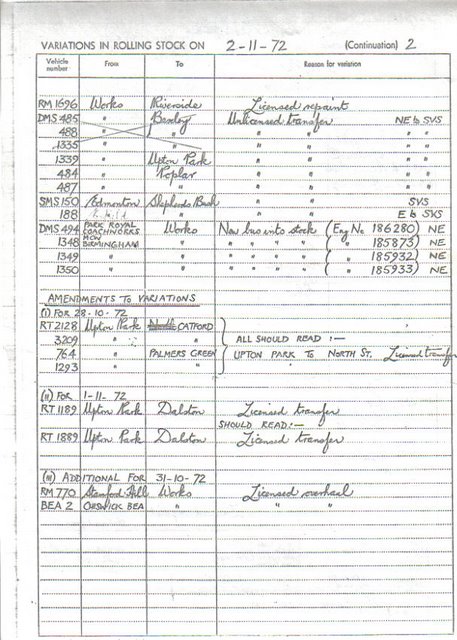 VARIATIONS IN ROLLING STOCK ON 2-11-72 (Continuation) 2
Vehicle number From To Reason for variation
RM 1696 Works Riverside Licensed repaint
DMS 485 " Bexley Unlicensed transfer NE to SVS
488 " " " " " "
1335 " " " " " "
1339 " Upton Park " " " "
484 " Poplar " " " "
487 " " " " " "
SMS 150 Edmonton Shepherds Bush " " SVS
188 " " " E to SVS
DMS 494 PARK ROYAL COACHWORKS Works New bus into stock (Eng No 186280) NE
1348 MCW BIRMINGHAM " " " " " ( " 185873) NE
1349 " " " " " " ( " 185932) NE
1350 " " " " " " ( " 185933) NE
AMENDMENTS TO VARIATIONS
(i) FOR 28-10-72
RT 2128 Upton Park CATFORD
3209 " " ALL SHOULD READ :-
764 " PALMERS GREEN UPTON PARK TO NORTH ST. Licensed transfer
1293 " "
(ii) FOR 1-11-72
RT 1189 Upton Park Dalston Licensed transfer
SHOULD READ:-
RT 1889 Upton Park Dalston Licensed transfer
(iii) ADDITIONAL FOR 31-10-72
RM 770 Stamford Hill Works Licensed overhaul
BEA 2 CHISWICK BEA " " "